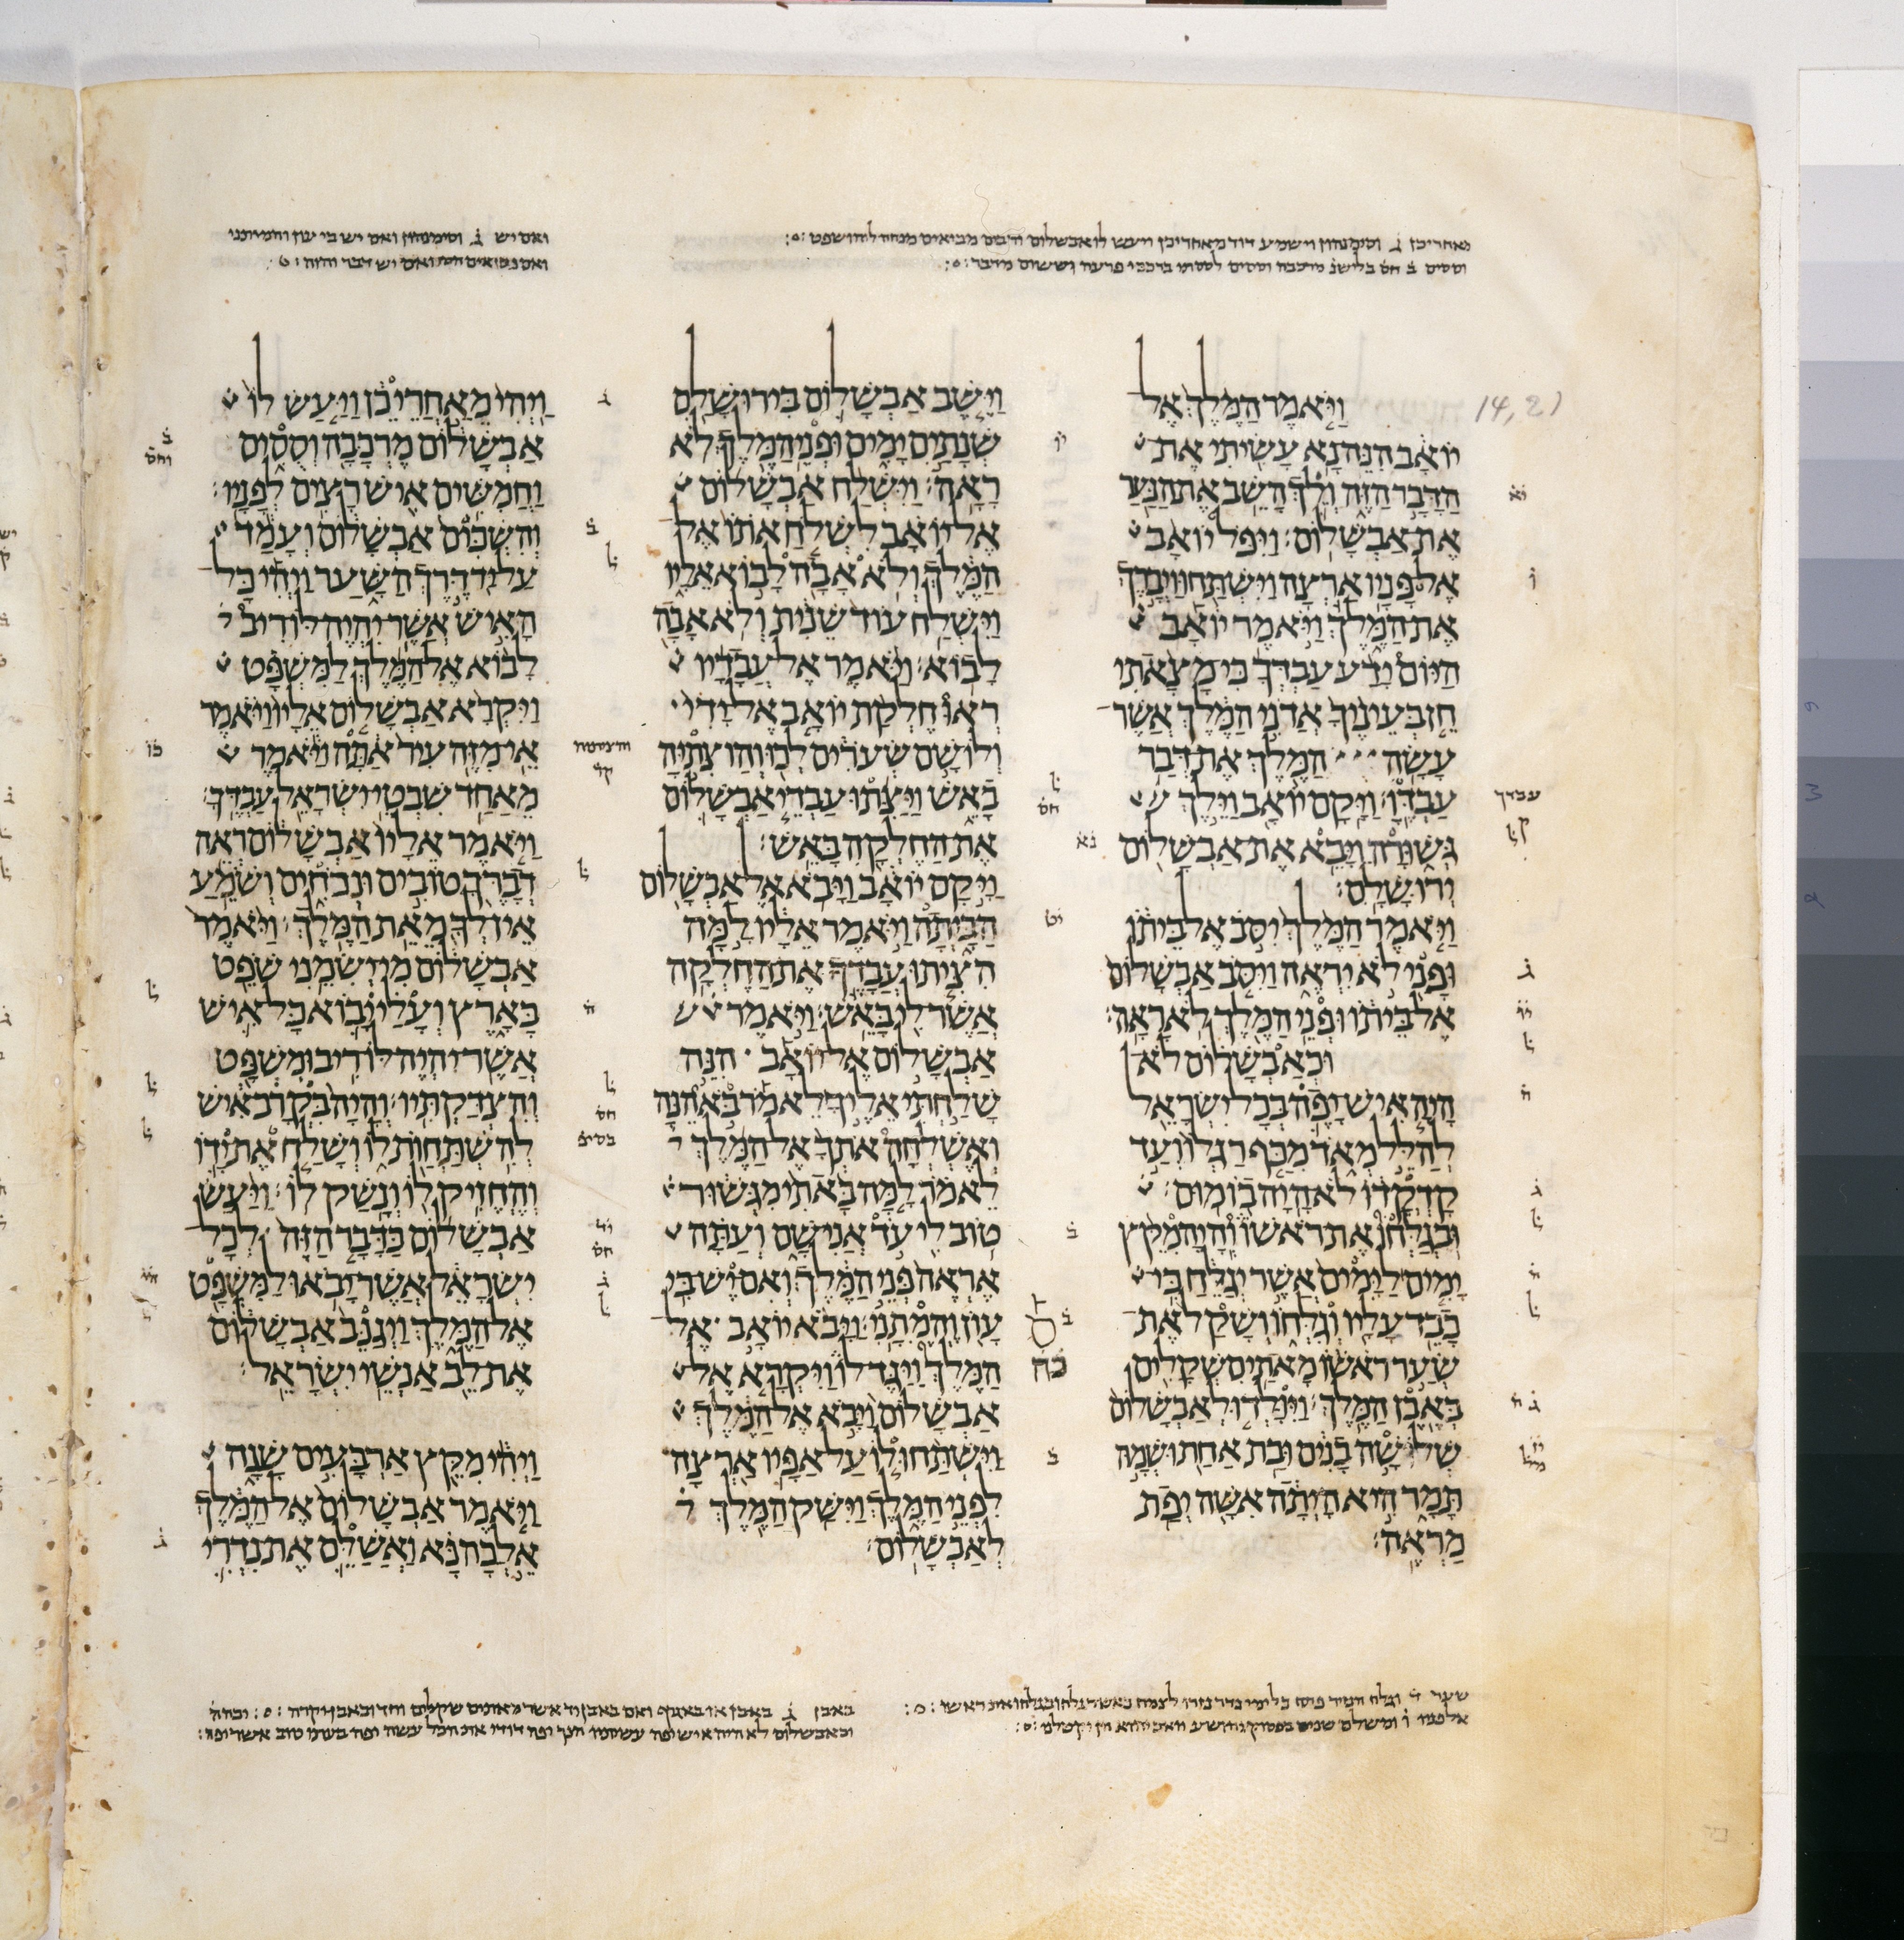 מאחרי כן ג וסימנהון וישמע דוד מאחרי כן ויעש לו אבשלום מביאים מנחה ליהושפט
וססים ב חס בלישנ מרכבה וססים לססתי ברכבי פרעה
ואם יש ג וסימנהון ואם יש בי עון והמיתני
ואם יש דבר והיה
14,21
ויאמר המלך אל
יואב הנה נא עשיתי את
הדבר הזה ולך השב את הנער
את אבשלום׃ ויפל יואב
אל פניו ארצה וישתחו ויברך
את המלך ויאמר יואב
היום ידע עבדך כי מצאתי
חן בעיניך אדני המלך אשר
עשה המלך את דבר
עבדו׃ ויקם יואב וילך
גשורה ויבא את אבשלום
ירושלם׃
ויאמר המלך יסב אל ביתו
ופני לא יראה ויסב אבשלום
אל ביתו ופני המלך לא ראה׃
וכאבשלום לא
היה איש יפה בכל ישראל
להלל מאד מכף רגלו ועד
קדקדו לא היה בו מום׃
ובגלחו את ראשו והיה מקץ
ימים לימים אשר יגלח כי
כבד עליו וגלחו ושקל את
שער ראשו מאתים שקלים
באבן המלך׃ ויולדו לאבשלום
שלושה בנים ובת אחת ושמה
תמר היא היתה אשה יפת
מראה׃
וישב אבשלום בירושלם
שנתים ימים ופני המלך לא
ראה׃ וישלח אבשלום
אל יואב לשלח אתו אל
המלך ולא אבה לבוא אליו
וישלח עוד שנית ולא אבה
לבוא׃ ויאמר אל עבדיו
ראו חלקת יואב אל ידי
ולו שם שערים לכו והוצתיה
באש ויצתו עבדי אבשלום
את החלקה באש׃
ויקם יואב ויבא אל אבשלום
הביתה ויאמר אליו למה
הציתו עבדך את החלקה
אשר לי באש׃ ויאמר
אבשלום אל יואב הנה
שלחתי אליך לאמר בא הנה
ואשלחה אתך אל המלך
לאמר למה באתי מגשור
טוב לי עד אני שם ועתה
אראה פני המלך ואם יש בי
עון והמתני׃ ויבא יואב אל
המלך ויגד לו ויקרא אל
אבשלום ויבא אל המלך
וישתחו לו על אפיו ארצה
לפני המלך וישק המלך
לאבשלום׃
ויהי מאחרי כן ויעש לו
אבשלום מרכבה וססים
וחמשים איש רצים לפניו׃
והשכים אבשלום ועמד
על יד דרך השער ויהי כל
האיש אשר יהיה לו ריב
לבוא אל המלך למשפט
ויקרא אבשלום אליו ויאמר
אי מזה עיר אתה ויאמר
מאחד שבטי ישראל עבדך׃
ויאמר אליו אבשלום ראה
דבריך טובים ונכחים ושמע
אין לך מאת המלך׃ ויאמר
אבשלום מי ישמני שפט
בארץ ועלי יבוא כל איש
אשר יהיה לו ריב ומשפט
והצדקתיו׃ והיה בקרב איש
להשתחות לו ושלח את ידו
והחזיק לו ונשק לו׃ ויעש
אבשלום כדבר הזה לכל
ישראל אשר יבאו למשפט
אל המלך ויגנב אבשלום
את לב אנשי ישראל׃
ויהי מקץ ארבעים שנה
ויאמר אבשלום אל המלך
אלכה נא ואשלם את נדרי
שער וגלח הנזיר פתח כל ימי נדר נזרו
באבן ג באבן או באגרף ואם באבן יד אשר מאתים שקלים
וכאבשלום לא היה איש יפה